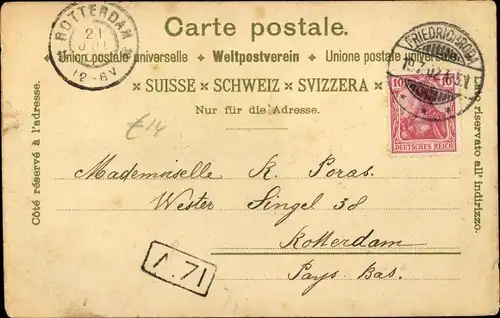 Carte postale.
ROTTERDAM
21
12-6V
Union postale universelle ✦ Weltpostverein ✦ Unione postale universale
× SUISSE × SCHWEIZ × SVIZZERA ×
Nur für die Adresse.
Côté réservé à l'adresse.
Lato riservato all' indirizzo.
10 10
DEUTSCHES REICH
£14
Mademoiselle K. Poras.
Wester Singel 38
Rotterdam
Pays Bas.